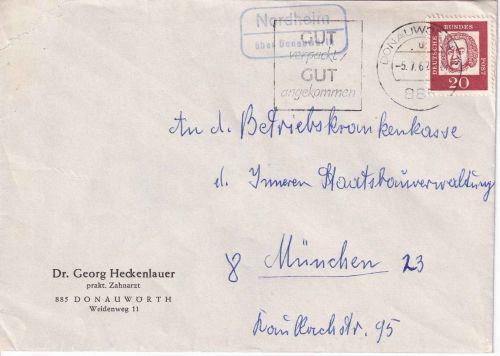 Nordheim
über Donauwörth
GUT
verpackt,
GUT
angekommen
DONAUWÖ
-5.7.62
DEUTSCHE BUNDESPOST
20
An d. Betriebskrankenkasse
d. Inneren Staatsbauverwaltung
8 München 23
Kaulbachstr. 95
Dr. Georg Heckenlauer
prakt. Zahnarzt
885 DONAUWÖRTH
Weidenweg 11